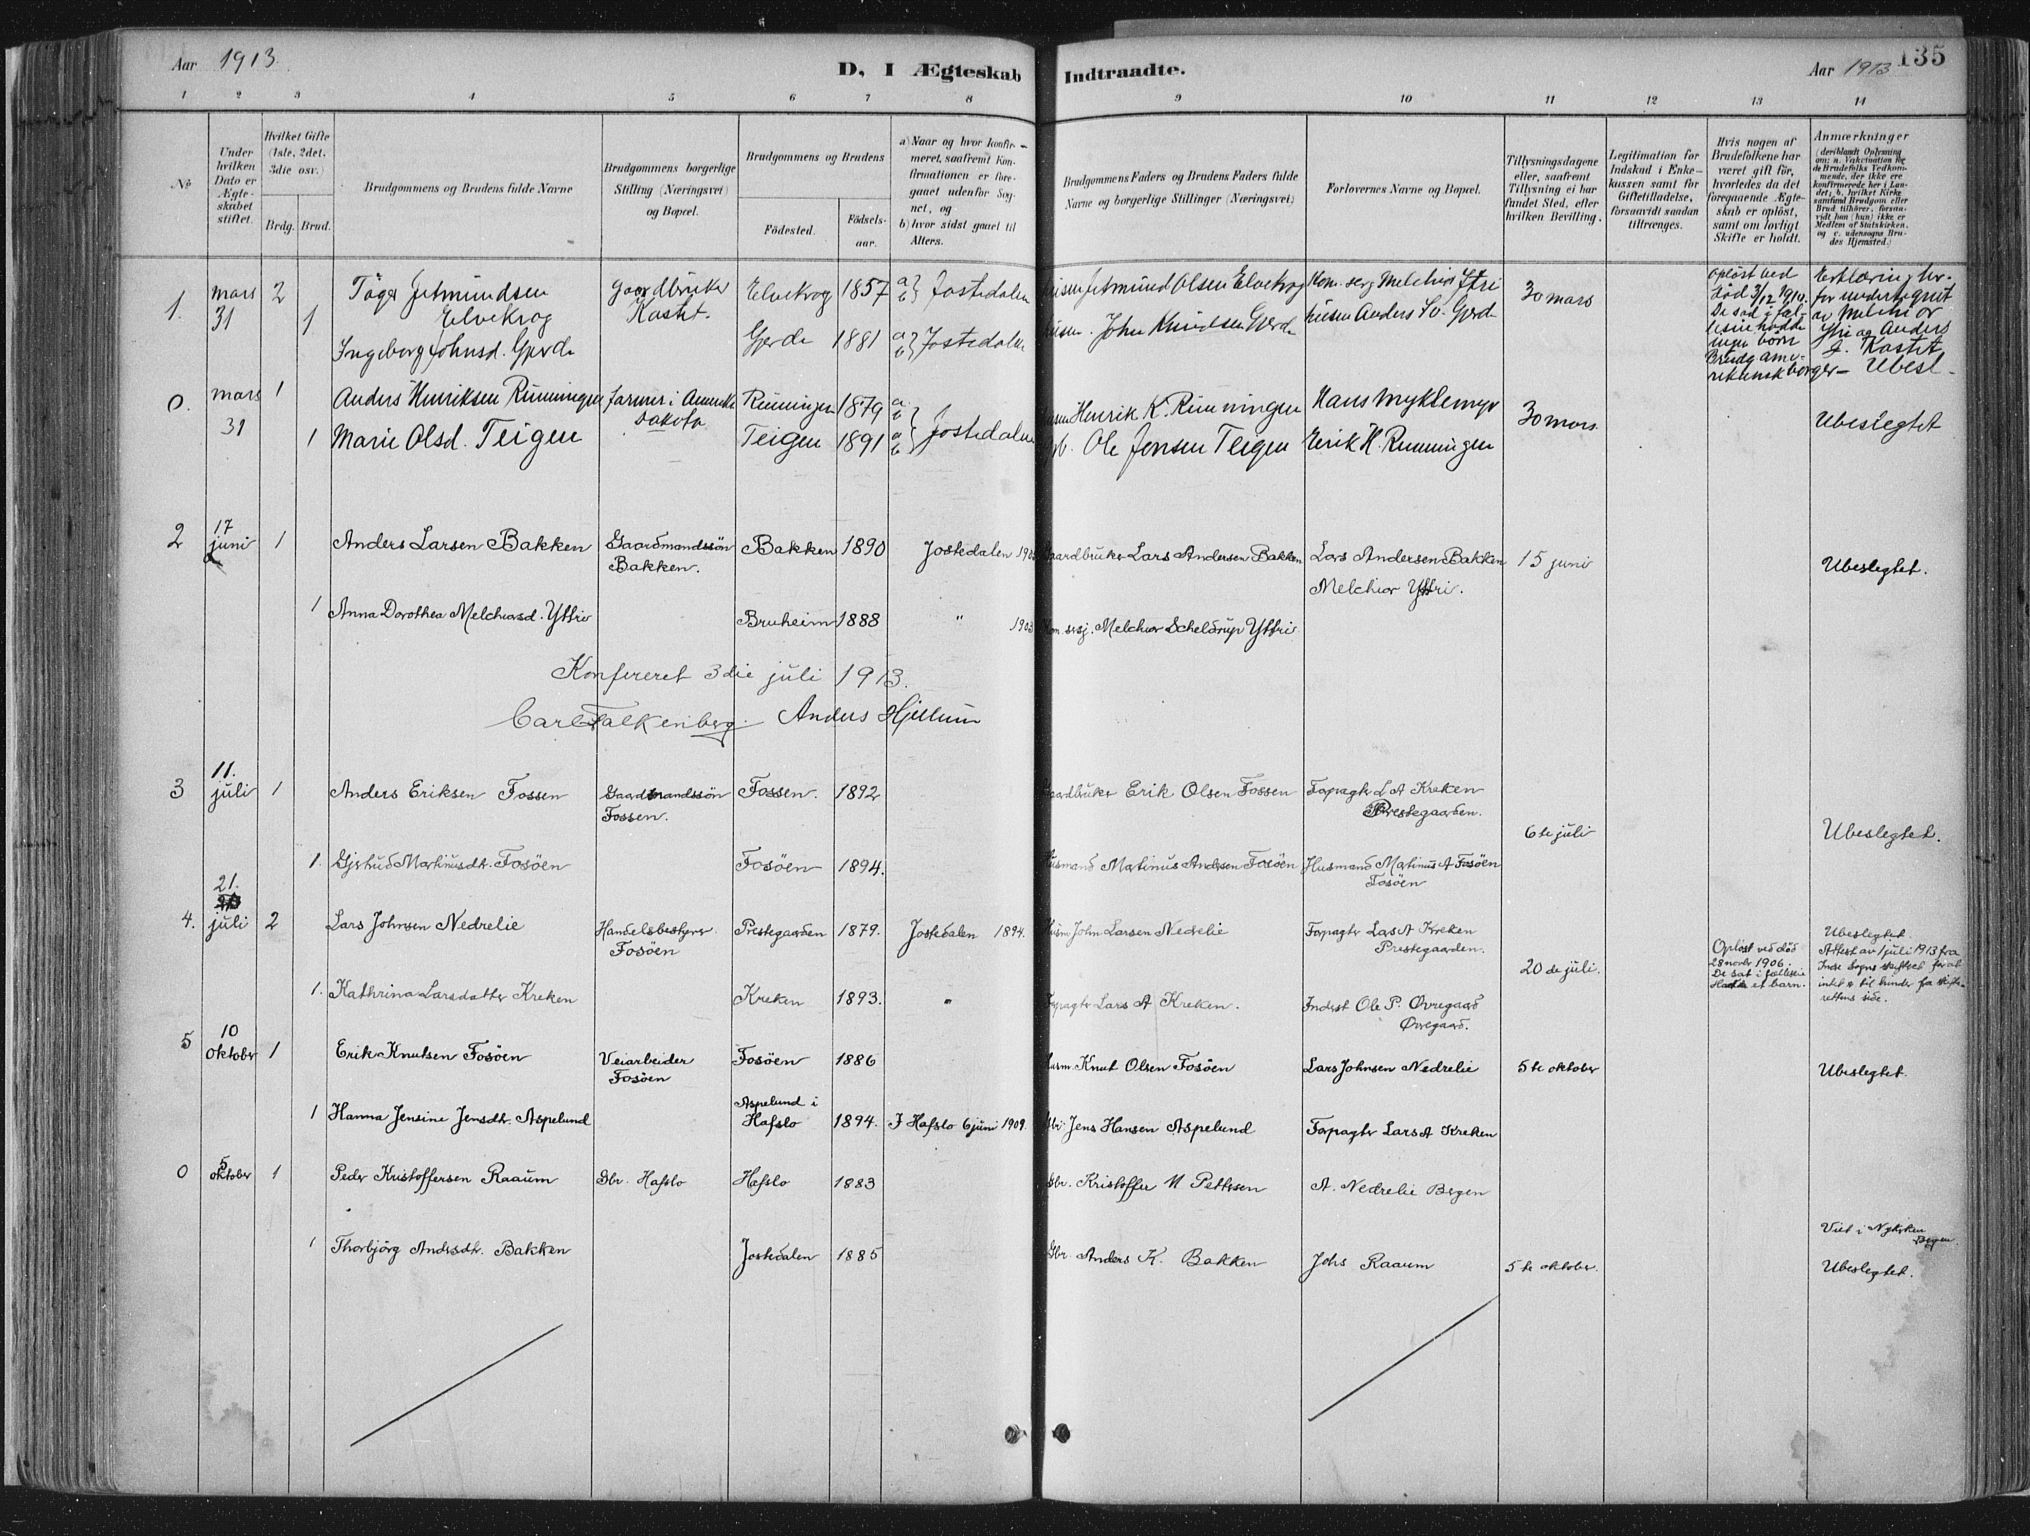 Aar 1913.
D, I Ægteskab Indtraadte.
Aar 1913 135
1 2 3 4 5 6 7 8 9 10 11 12 13 14
No
Under hvilken Dato er Ægteskabet stiftet.
Hvilket Gifte (1ste, 2det, 3die osv.)
Brdg. Brud.
Brudgommens og Brudens fulde Navne
Brudgommens borgerlige Stilling (Næringsvei) og Bopæl.
Brudgommens og Brudens
Fødested. Fødselsaar.
a) Naar og hvor konfirmeret, saafremt Konfirmationen er foregaaet udenfor Sognet, og
b) hvor sidst gaaet til Alters.
Brudgommens Faders og Brudens Faders fulde Navne og borgerlige Stillinger (Næringsvei)
Forlovernes Navne og Bopæl.
Tillysningsdagene eller, saafremt Tillysning ei har fundet Sted, efter hvilken Bevilling.
Legitimation for Indskud i Enkekassen samt for Giftetilladelse, forsaavidt saadan tiltrænges.
Hvis nogen af Brudefolkene har været gift før, hvorledes da det foregaaende Ægteskab er opløst, samt om lovligt Skifte er holdt.
Anmærkninger
(deriblandt Oplysning om: a. Vakcination for de Brudefolks Vedkommende, der ikke ere konfirmerede her i Landet; b. hvilket Kirkesamfund Brudgom eller Brud tilhører, forsaavidt han (hun) ikke er Medlem af Statskirken, og c. udensogns Brudes Hjemsted.)
1. mars 31 2 Tøger Jetmundsen Elvekrog Gaardbruker Kastet. Elvekrog 1857 a b} Jostedalen Jetmund Olsen Elvekrog Kom. serg Melchior Yttri 30 mars
1 Ingeborg Johnsd. Gjerde Gjerde 1881 a b} Jostedalen husm. John Knudsen Gjerde Anders Gjerde
opløst ved død 3/12 1910. De sad i fællesie hadde ingen børn Brudg amerikansk borger
Erklæring herfor undertegnet av Melchior Yttri og Anders J. Kastet. Ubesl.
0. mars 31 1 Anders Henriksen Rumingen farmer i Amerika Dakota Rumingen 1879 a b Henrik K. Rumingen Hans Myklemyr 30 mars Ubeslegtet
1 Marie Olsd. Teigen Teigen 1891 a b} Jostedalen Ole Jensen Teigen Eerik H. Rumingen
2 17 juni 1 Anders Larsen Bakken Gaardmandssøn Bakken. Bakken 1890 Jostedalen Gaardbruker Lars Andersen Bakken Lars Andersen Bakken 15 juni Ubeslegtet.
Melchior Yttri.
1 Anna Dorothea Melchiorsd. Yttri Bruheim 1888 " 1903 Kom. sersj. Melchior Scheldrup Yttri
Konfereret 3die juli 1913.
Carl Falkenberg. Anders Hjellum
3 11. juli 1 Anders Eriksen Fossen Gaardmandssøn Fossen. Fossen. 1892 Gaardbruker Erik Olsen Fossen Forpagter L A Kreken Prestegaarden.
6te juli Ubeslegtet.
1. Gjertrud Martinusdtr. Fosøen Fosøen 1894. Husmand Martinus Andersen Fosøen Husmand Martinus A Fosøen Fosøen
4. 21. juli 2 Lars Johnsen Nedrelie Handelsbestyrer Fosøen Prestegaarden 1879. Jostedalen 1894. Husm. John Larsen Nedrelie Forpagter Lars A Kreken Prestegaarden.
20de juli. Opløst ved død 28 novbr 1906. De sat i fællesie Hadde et barn.
Ubeslegtet. Attest av 1 juli 1913 fra Indre Sogns skifteret for at intet er til hinder fra skifterettens side.
1. Kathrina Larsdatter Kreken Kreken 1893. " Forpagter Lars A Kreken. Inderst Ole P. Øvregaard Øvregaard.
5 10 oktober 1 Erik Knutsen Fosøen Veiarbeider Fosøen Fosøen 1886 Husm. Knut Olsen Fosøen Lars Johnsen Nedrelie 5te oktober Ubeslegtet.
1 Hanna Jensine Jensdtr. Aspelund Aspelund i Hafslo 1894. I Hafslo 6 juni 1909. Jens Hansen Aspelund Forpagter Lars A Kreken
0 5 oktober 1 Peder Kristoffersen Raaum Gbr. Hafslo Hafslo 1883 Gbr. Kristoffer M Pettersen A. Nedrelie Bergen
Viet i Nykirken Bergen.
1 Thorbjørg Andersdtr. Bakken Jostedalen 1885 Gbr. Anders K. Bakken Johs Raaum 5te oktober. Ubeslegtet.